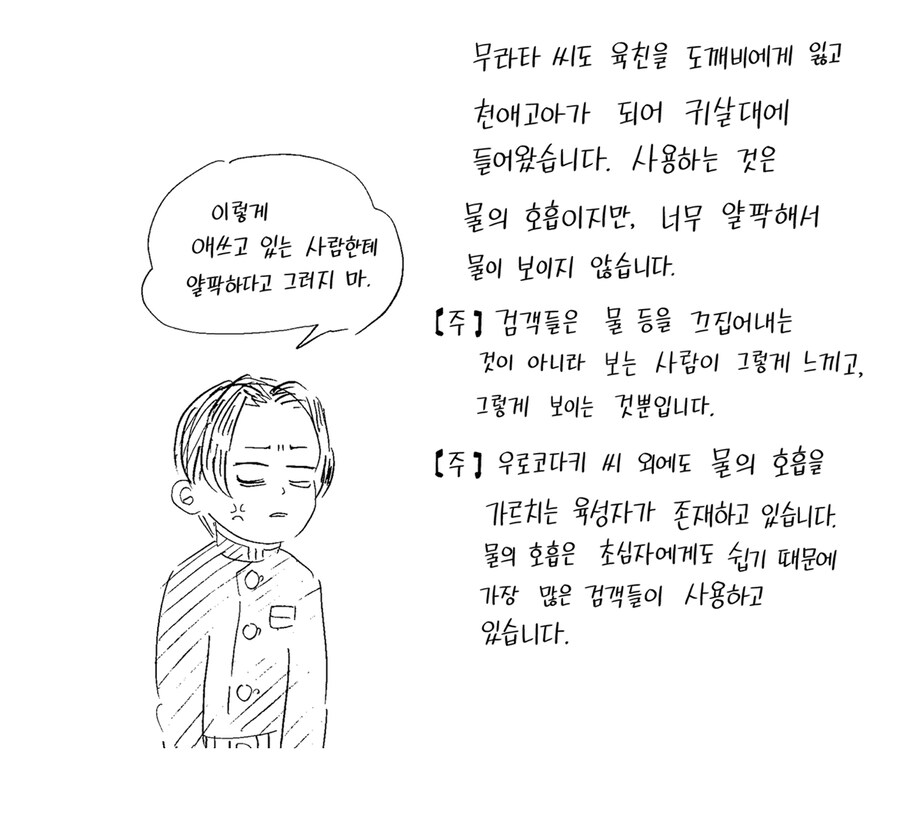 이렇게
애쓰고 있는 사람한테
얄팍하다고 그러지 마.
무라타 씨도 육친을 도깨비에게 잃고
천애고아가 되어 귀살대에
들어왔습니다. 사용하는 것은
물의 호흡이지만, 너무 얄팍해서
물이 보이지 않습니다.
【주】 검객들은 물 등을 끄집어내는
것이 아니라 보는 사람이 그렇게 느끼고,
그렇게 보이는 것뿐입니다.
【주】 우로코다키 씨 외에도 물의 호흡을
가르치는 육성자가 존재하고 있습니다.
물의 호흡은 초심자에게도 쉽기 때문에
가장 많은 검객들이 사용하고
있습니다.